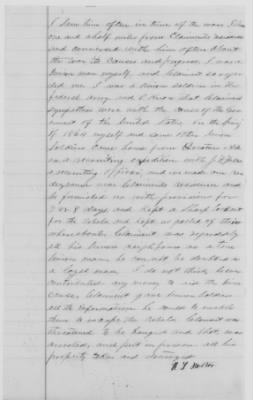 I saw him often in time of the war. I live
one and a half miles from Claimants residence
and conversed with him often about
the war its causes and progress. I was a
Union man myself and Claimant so regar-
ded me I was a Union soldier in the
federal army and I know that Claimants
sympathies were with the cause of the Gov-
ernment of the United States in the
of 1864 myself and some other Union
Soldiers came home from
on a recruiting expedition with
recruiting officer, and we made our
Claimants residence and
he furnished us with provisions for
7 or 8 days and kept a sharp lookout
for the rebels and kept us posted of their
whereabouts Claimant was regarded
by all his Union neighbors as a true
Union man he can not be doubted as
a loyal man. I do not think he ever
contributed any money to aid the Union
Cause, Claimant gave Union Soldiers
all the information he could to enable
them to escape the Rebels Claimant was
threatened to be hanged and shot, was
arrested, and put in prison all his
property taken and destroyed